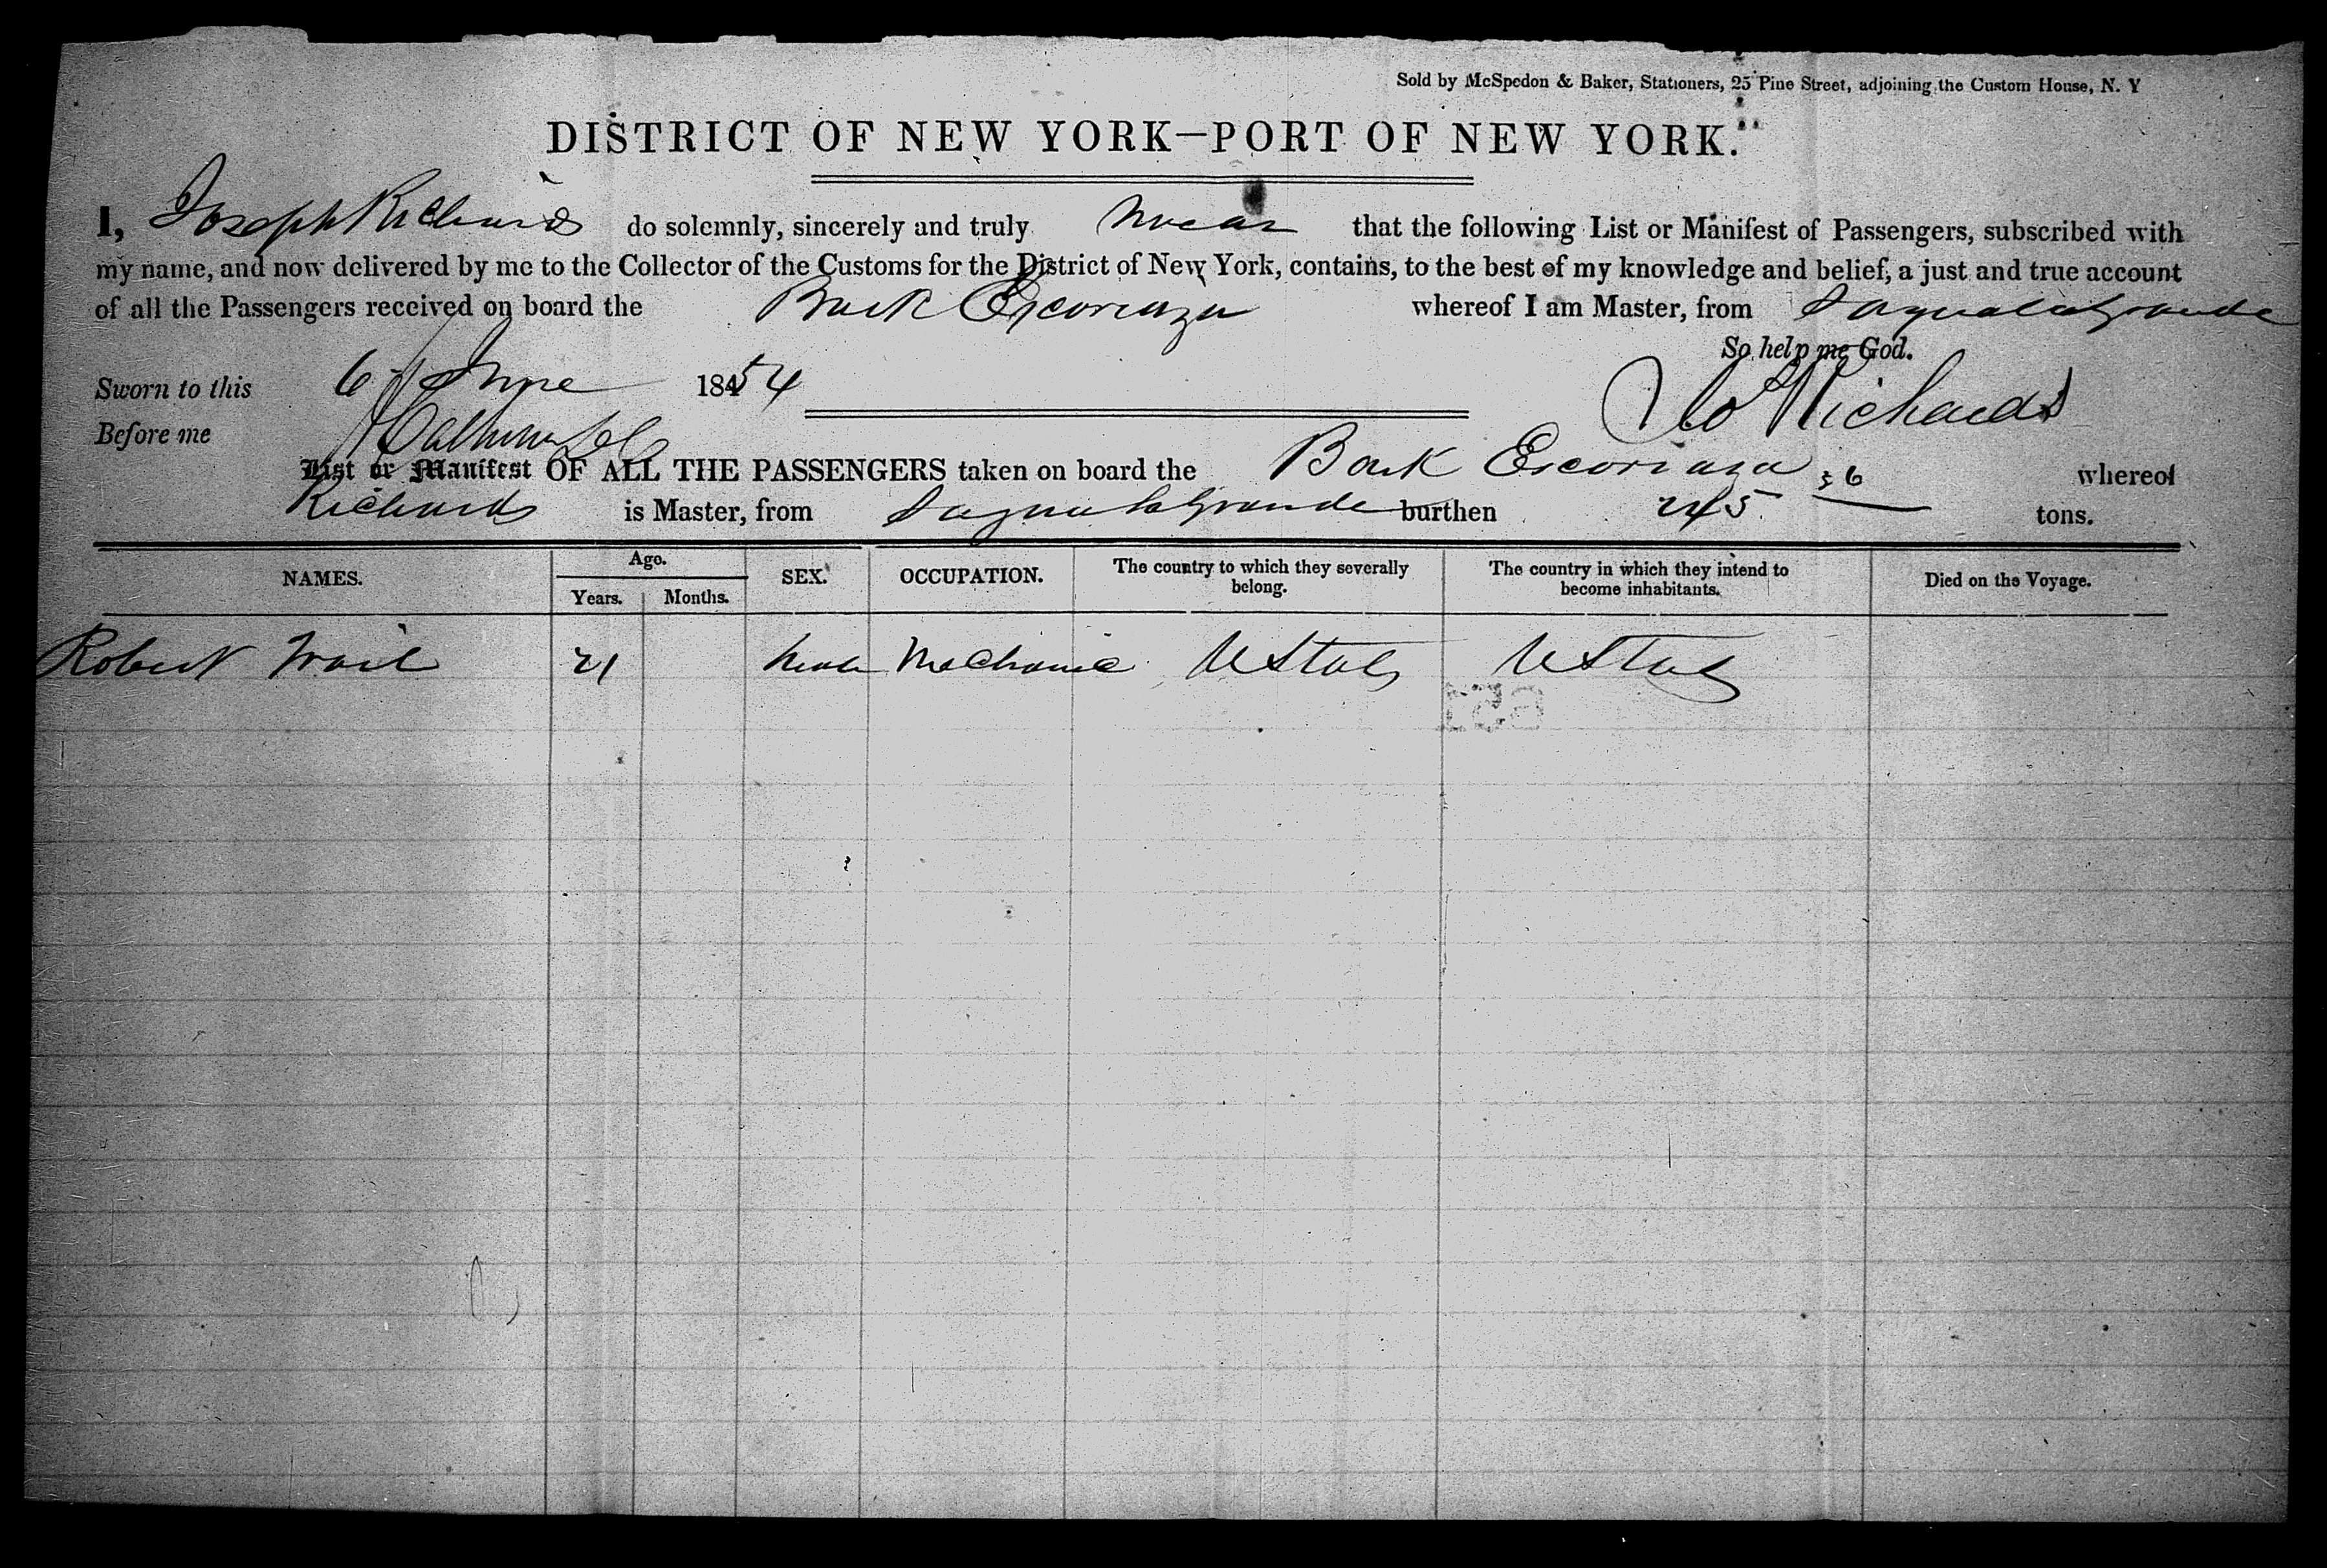 Sold by McSpedon & Baker, Stationers, 25 Pine Street, adjoining the Custom House, N. Y
DISTRICT OF NEW YORK—PORT OF NEW YORK.
I, Joseph Richards do solemnly, sincerely and truly swear that the following List or Manifest of Passengers, subscribed with
my name, and now delivered by me to the Collector of the Customs for the District of New York, contains, to the best of my knowledge and belief, a just and true account
of all the Passengers received on board the Bark Escoriaza whereof I am Master, from Sagua la Grande
So help me God.
Sworn to this 6 June 1854
Jos Richards
Before me
List or Manifest OF ALL THE PASSENGERS taken on board the Bark Escoriaza whereof
Richards is Master, from Sagua la Grande burthen 245 tons.
NAMES. Age. SEX. OCCUPATION. The country to which they severally belong. The country in which they intend to become inhabitants. Died on the Voyage.
Years. Months.
Robert Trail 21 Male Mechanic U States U States